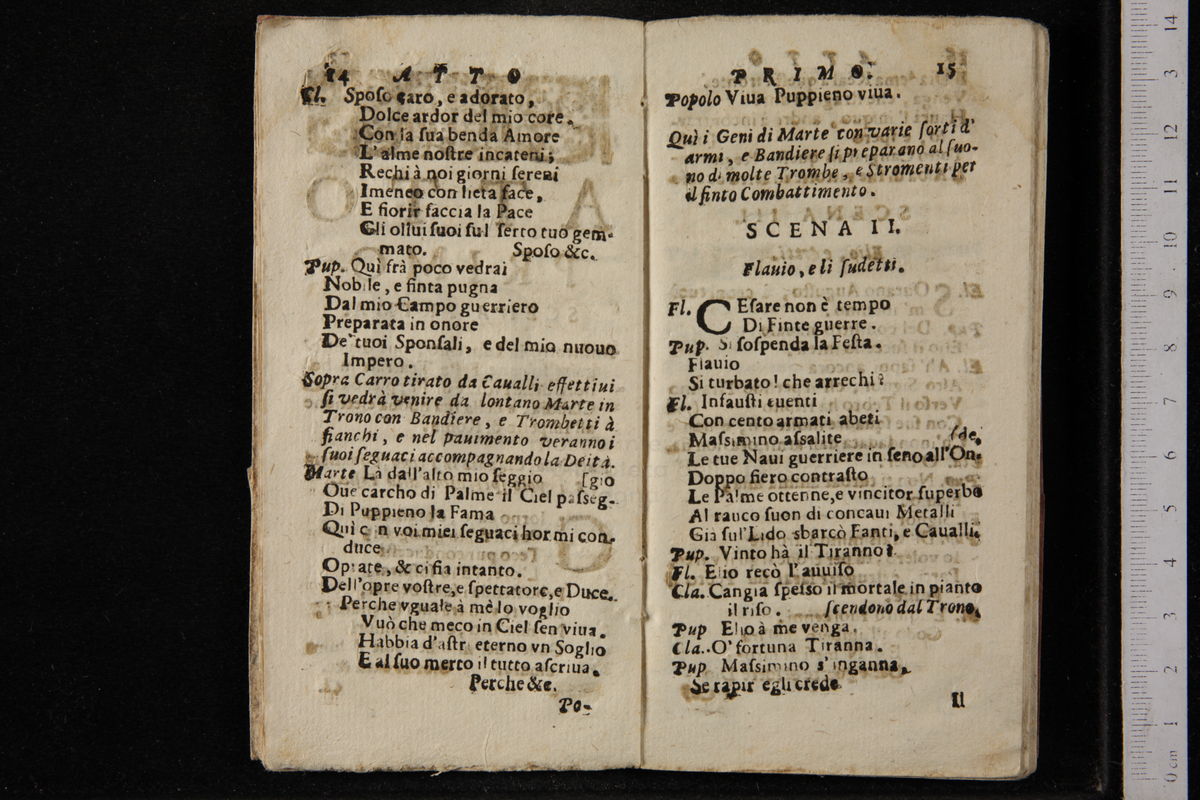 14 ATTO
Cl. Sposo caro, e adorato,
Dolce ardor del mio core.
Con la sua benda Amore
L'alme nostre incateni;
Rechi à noi giorni sereni
Imeneo con lieta face,
E fiorir faccia la Pace
Gli ollui suoi sul serto tuo gem-
mato. Sposo &c.
Pup. Quì frà poco vedrai
Nobile, e finta pugna
Dal mio Campo guerriero
Preparata in onore
De' tuoi Sponsali, e del mio nuouo
Impero.
Sopra Carro tirato da Caualli effettiui
si vedrà venire da lontano Marte in
Trono con Bandiere, e Trombetti à
fianchi, e nel pauimento veranno i
suoi seguaci accompagnando la Deità.
Marte Là dall'alto mio seggio [gio
Oue carcho di Palme il Ciel passeg-
Di Puppieno la Fama
Quì con voi miei seguaci hor mi con-
duce
Oprate, & ci fia intanto.
Dell'opre vostre, e spettatore, e Duce.
Perche vguale à mè lo voglio
Vuò che meco in Ciel sen viua.
Habbia d'astri eterno vn Soglio
E al suo merto il tutto ascriua.
Perche &c.
Po-
PRIMO. 15
Popolo Viua Puppieno viua.
Quì i Geni di Marte con varie sorti d'
armi, e Bandiere si preparano al suo-
no di molte Trombe, e Stromenti per
il finto Combattimento.
SCENA II.
Flauio, e li sudetti.
Fl. CEsare non è tempo
Di Finte guerre.
Pup. Si sospenda la Festa.
Flauio
Si turbato! che arrechi?
Fl. Infausti euenti
Con cento armati abeti
Massimino assalite [de,
Le tue Naui guerriere in seno all'On-
Doppo fiero contrasto
Le Palme ottenne, e vincitor superbo
Al rauco suon di concaui Metalli
Già sul'Lido sbarcò Fanti, e Caualli.
Pup. Vinto hà il Tiranno?
Fl. Elio recò l'auuiso
Cla. Cangia spesso il mortale in pianto
il riso. scendono dal Trono.
Pup Elio à me venga.
Cla. O' fortuna Tiranna.
Pup Massimino s'inganna,
Se rapir egli crede
Il